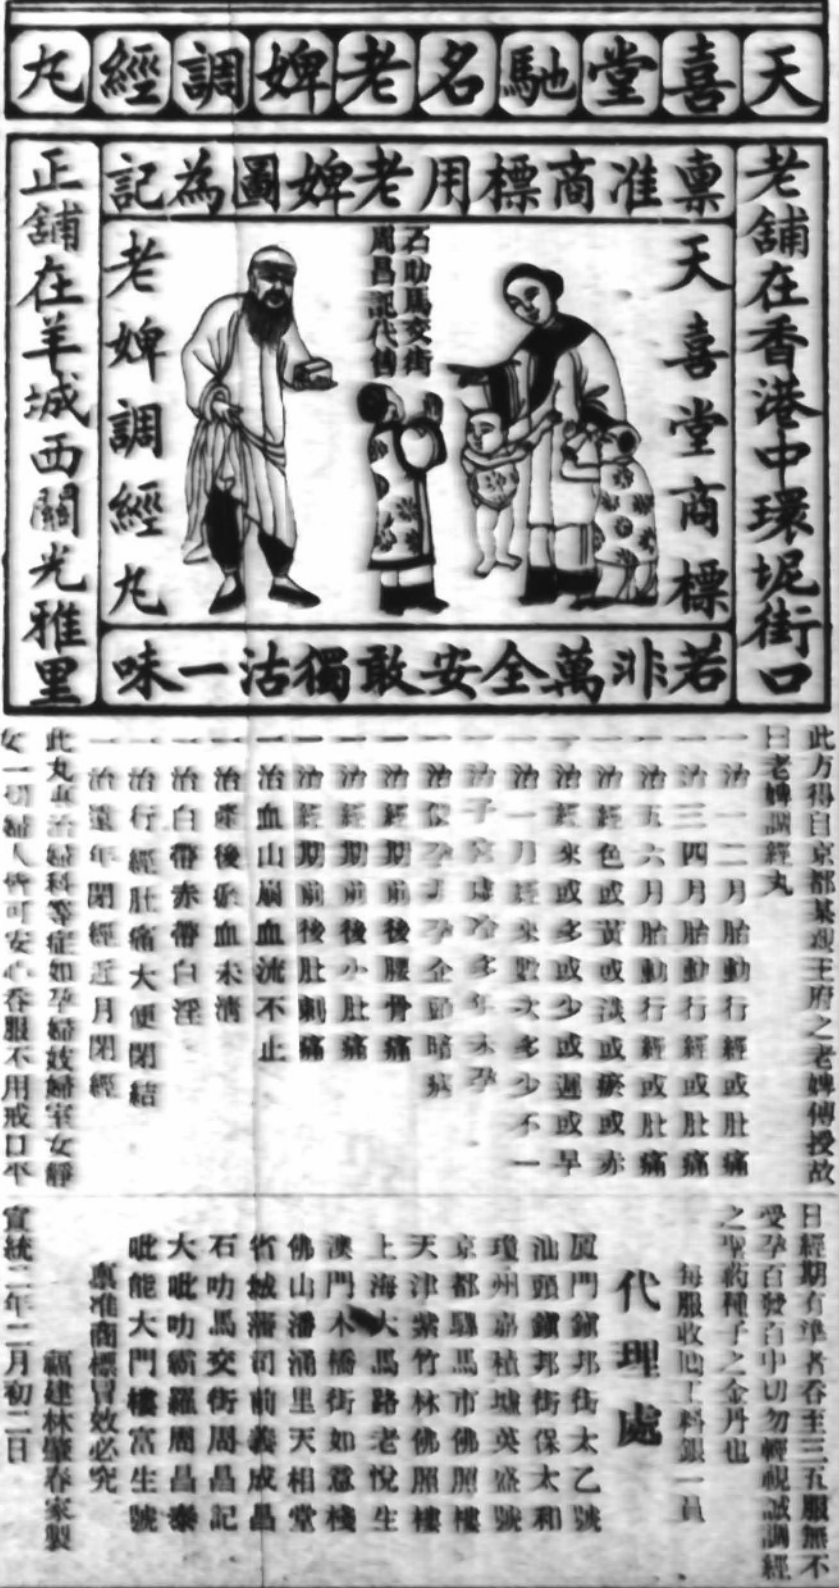 天喜堂馳名老婢調經丸
老舖在香港中環坭街口
稟准商標用老婢圖為記
正舖在羊城西關光雅里
天喜堂商標
石叻馬交街
周昌記代售
老婢調經丸
若非萬全安敢獨沽一味
此方得自京都某親王府之老婢傳授故
曰老婢調經丸
一治一二月胎動行經或肚痛
一治三四月胎動行經或肚痛
一治五六月胎動行經或肚痛
一治經色或黃或淺或瘀或赤
一治經來或多或少或遲或早
一治一月經來數次多少不一
一治子宮虛冷多年未孕
一治孕
一治經期前後腰骨痛
一治經期前後小肚痛
一治經期前後肚刺痛
一治血山崩血流不止
一治產後瘀血未清
一治白帶赤帶白淫
一治行經肚痛大便閉結
一治遠年閉經近月閉經
此丸專治婦科等症如孕婦妓婦室女靜
女一切婦人皆可安心吞服不用戒口平
日經期有準者吞至三五服無不
受孕百發百中切勿輕視誠調經
之聖药種子之金丹也
每服收回工料銀一員
代理處
厦門鎮邦街太乙號
汕頭鎮邦街保太和
瓊州嘉積墟英盛號
京都騾馬市佛照樓
天津紫竹林佛照樓
上海大馬路老悅生
澳門木橋街如意棧
佛山潘涌里天相堂
省城藩司前義成昌
石叻馬交街周昌記
大吡叻霸羅周昌泰
吡能大門樓富生號
稟准商標冒效必究
福建林肇春家製
宣統二年二月初二日